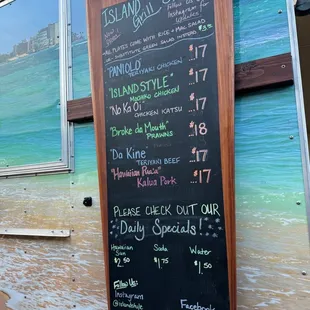 ISLAND
Grill
Follow us
Instagram for
All Plates come with Rice + Mac Salad
Green Salad instead $3.75
"Paniolo" $17
Teriyaki Chicken
"Island Style" $17
Mochiko Chicken
"No Ka Oi" $17
Chicken Katsu
"Broke da Mouth" $18
Prawns
"Da Kine $17
Teriyaki Beef
"Hawaiian Plate" $17
Kalua Pork
Please check out our
Daily Specials!
Hawaiian Soda Water
Sun $1.75 $1.50
$2.50
Follow Us:
Instagram Facebook
@islandstyle